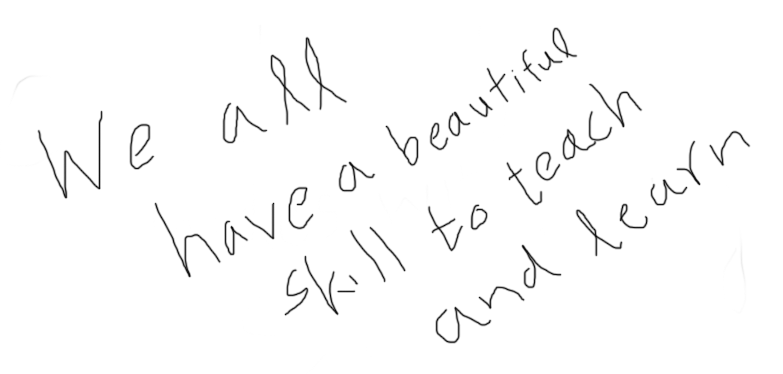 We all
have a beautiful
skill to teach
and learn